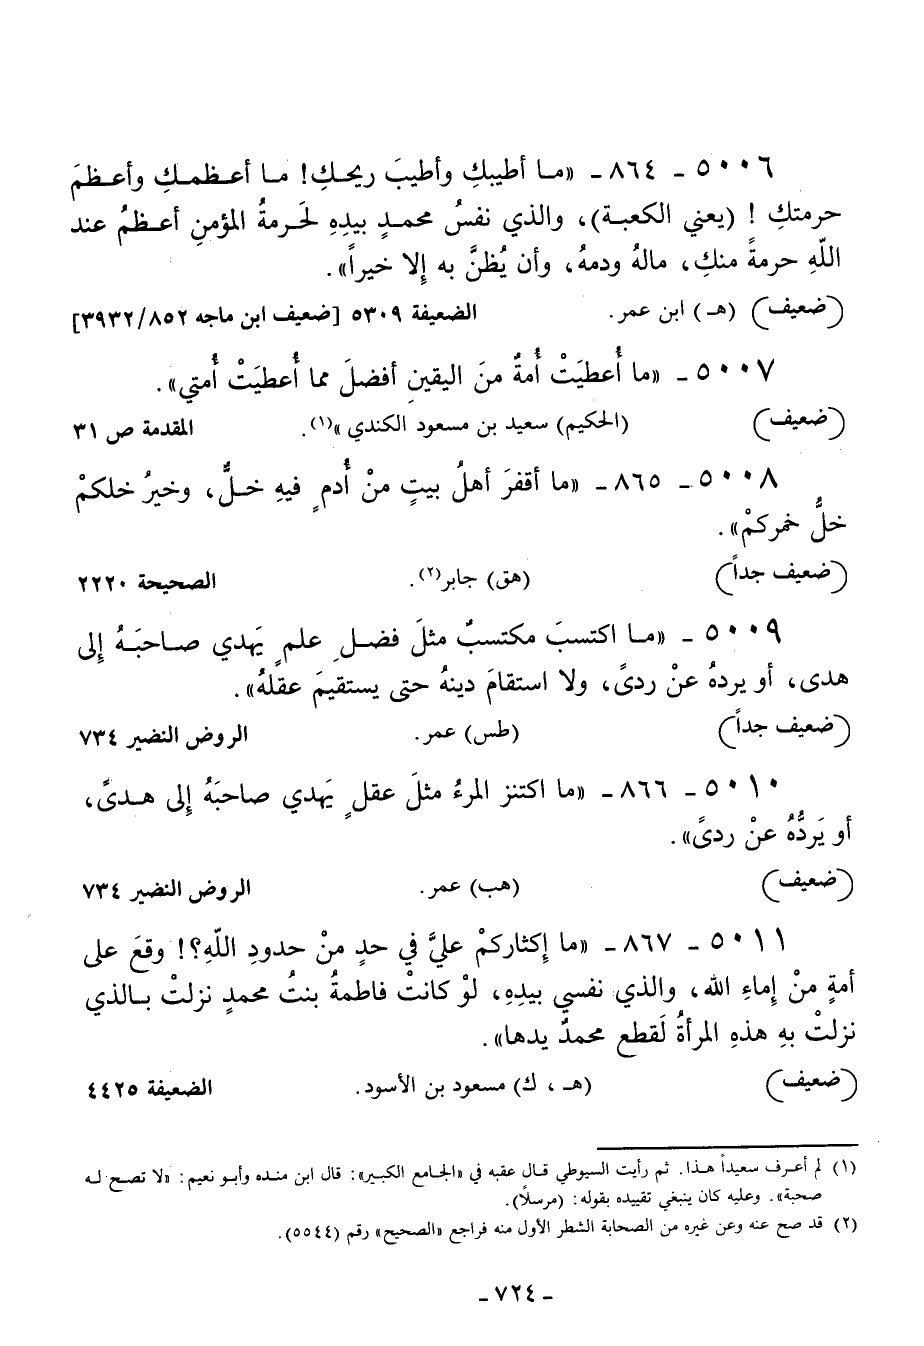 ٥٠٠٦ - ٨٦٤ - «ما أطيبكِ وأطيبَ ريحكِ! ما أعظمكِ وأعظمَ
حرمتكِ ! (يعني الكعبة)، والذي نفسُ محمدٍ بيدِهِ لَحَرمةُ المؤمنِ أعظمُ عند
اللّهِ حرمةً منكِ، مالهُ ودمهُ، وأن يُظنَّ به إلا خيراً».
(ضعيف) (هـ) ابن عمر. الضعيفة ٥٣٠٩ [ضعيف ابن ماجه ٣٩٣٢/٨٥٢]
٥٠٠٧ - «ما أُعطيَتْ أُمةٌ منَ اليقينِ أفضلَ مما أُعطيَتْ أُمتي».
(ضعيف) (الحكيم) سعيد بن مسعود الكندي »(١). المقدمة ص ٣١
٥٠٠٨ - ٨٦٥ - «ما أقفرَ أهلُ بيتٍ منْ أُدمٍ فيهِ خلٌّ، وخيرُ خلكمْ
خلُّ خمركمْ».
(ضعيف جداً) (هق) جابر(٢). الصحيحة ٢٢٢٠
٥٠٠٩ - «ما اكتسبَ مكتسبٌ مثلَ فضلِ علمٍ يَهدي صاحبَهُ إلى
هدى، أو يردهُ عنْ ردىً، ولا استقامَ دينهُ حتى يستقيمَ عقلهُ».
(ضعيف جداً) (طس) عمر. الروض النضير ٧٣٤
٥٠١٠ - ٨٦٦ - «ما اكتنز المرءُ مثلَ عقلٍ يَهدي صاحبَهُ إلى هدىً،
أو يَردُّهُ عنْ ردىً».
(ضعيف) (هب) عمر. الروض النضير ٧٣٤
٥٠١١ - ٨٦٧ - «ما إكثاركمْ عليَّ في حدٍ منْ حدودِ اللّهِ؟! وقعَ على
أمةٍ منْ إماءِ الله، والذي نفسي بيدِهِ، لوْ كانتْ فاطمةُ بنتُ محمدٍ نزلتْ بالذي
نزلتْ بهِ هذهِ المرأةُ لَقطع محمدٌ يدها».
(ضعيف) (هـ ، ك) مسعود بن الأسود. الضعيفة ٤٤٢٥
(١) لم أعرف سعيداً هذا. ثم رأيت السيوطي قال عقبه في «الجامع الكبير»: قال ابن منده وأبو نعيم: «لا تصح له
صحبة». وعليه كان ينبغي تقييده بقوله: (مرسلاً).
(٢) قد صح عنه وعن غيره من الصحابة الشطر الأول منه فراجع «الصحيح» رقم (٥٥٤٤).
- ٧٢٤ -